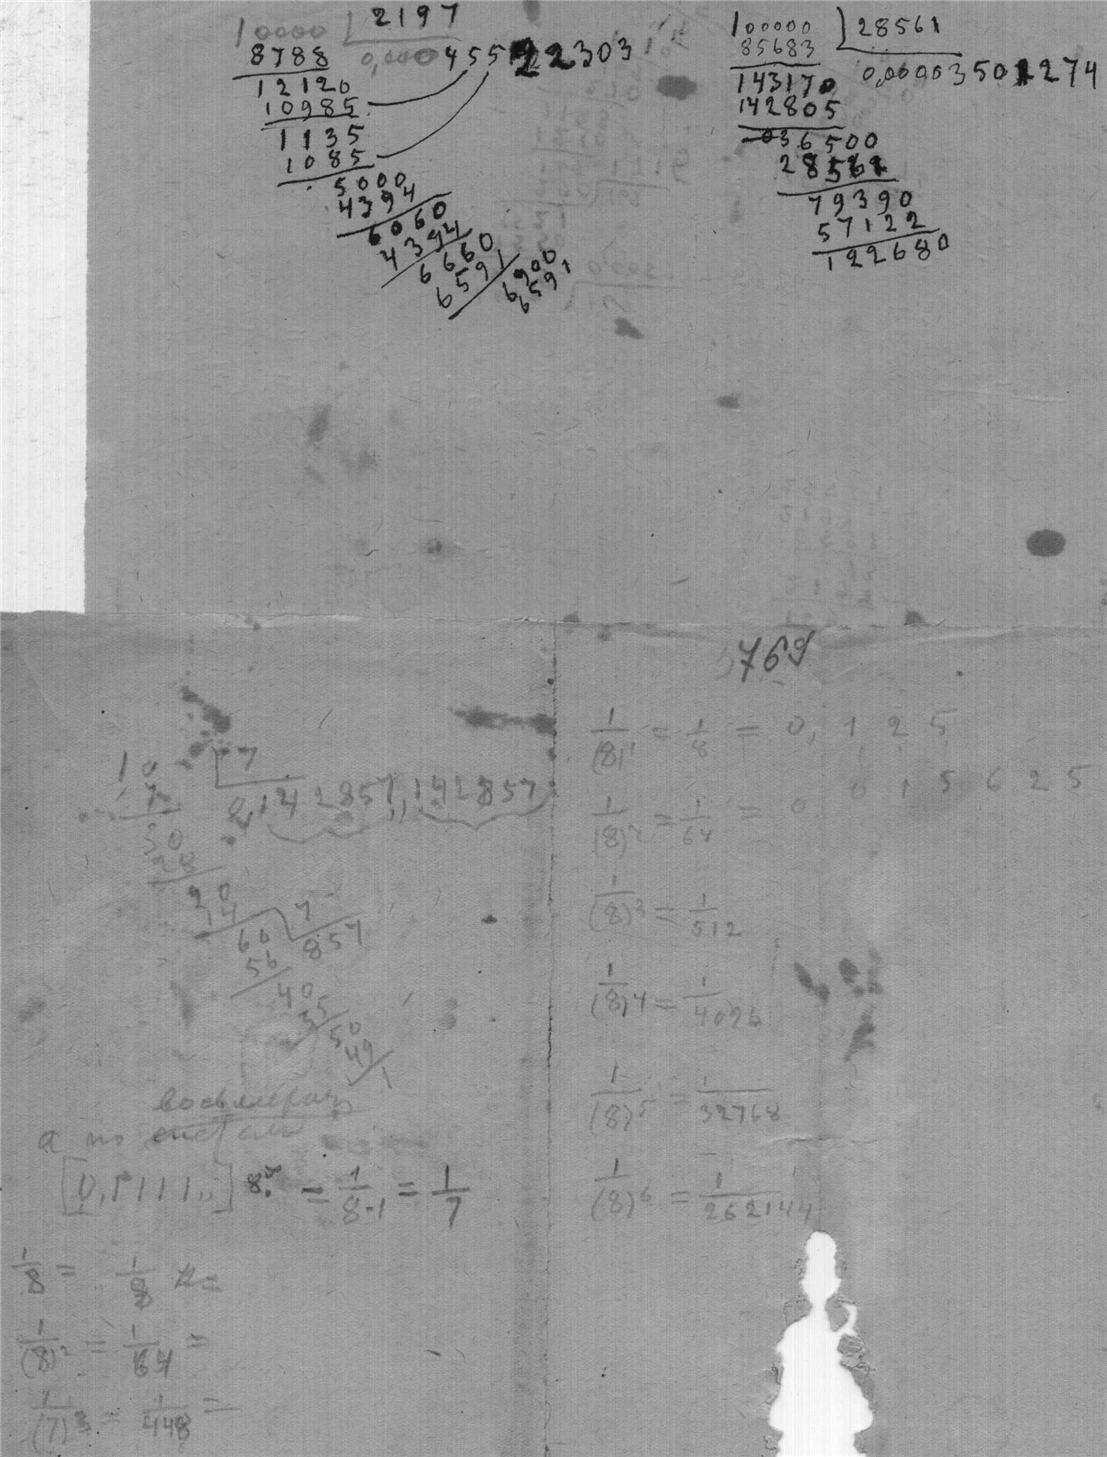 10000 | 2197
8788 0,00045522303
12120
10985
1135
1085
5000
4394
6060
4394
6660
6591
6900
6591
100000 | 28561
85683 0,00003501274
143170
142805
036500
28561
79390
57122
122680
769
10 | 7
7 0,142857,,142857
30
28
20
14
60 | 7
56 857
40
35
50
49
1
восьмерач
а по системе
[0,1111..] 8. = 1/8-1 = 1/7
1/8 = 1/8 =
1/(8)² = 1/64 =
1/(7)³ = 1/448 =
1/(8)¹ = 1/8 = 0,125
1/(8)² = 1/64 = 0 015625
1/(8)3 = 1/512
1/(8)4 = 1/4096
1/(8)5 = 1/32768
1/(8)6 = 1/262144